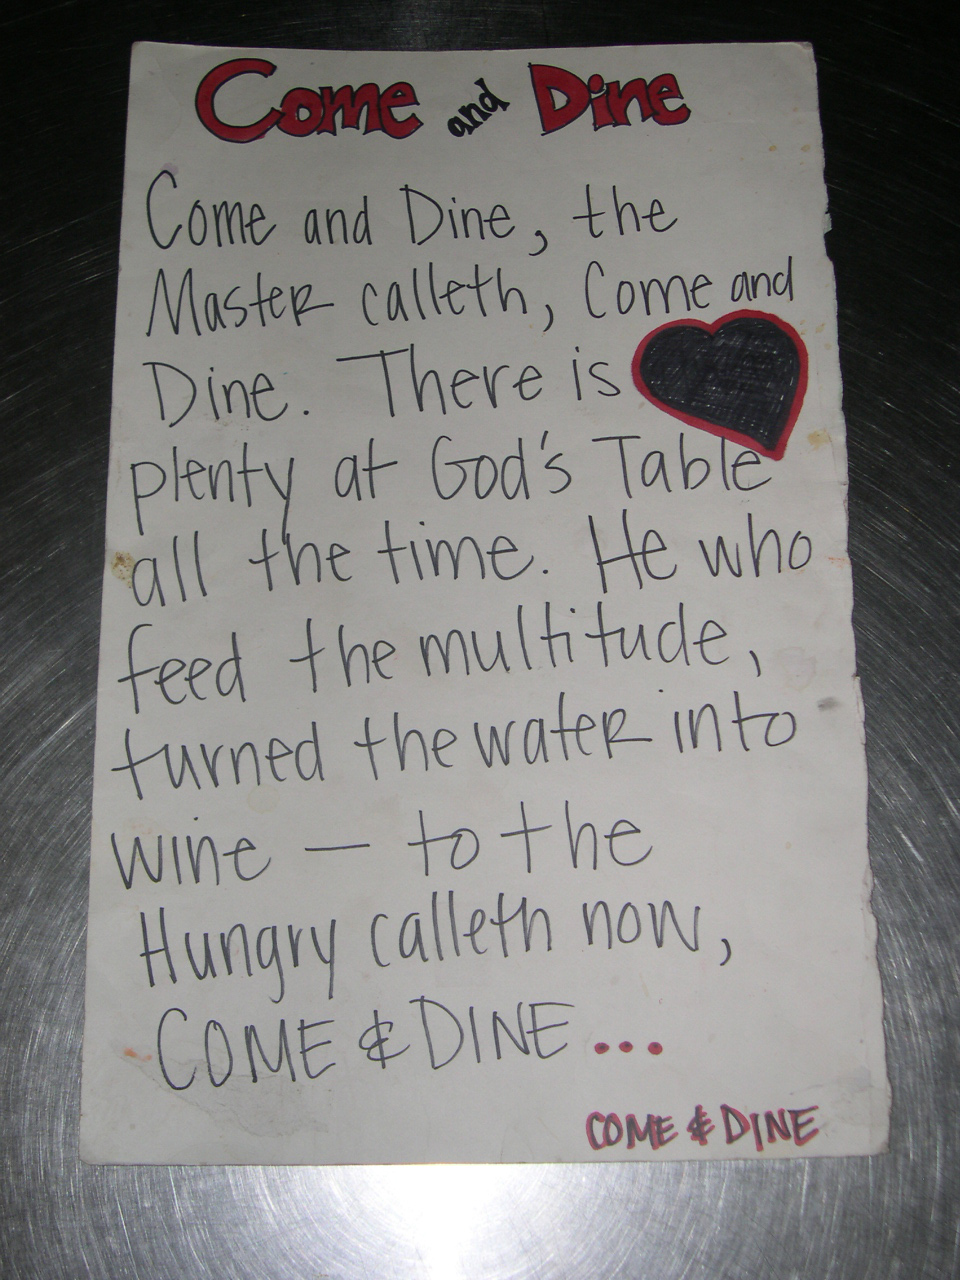 Come and Dine
Come and Dine, the
Master calleth, Come and
Dine. There is
plenty at God's Table
all the time. He who
feed the multitude,
turned the water into
wine — to the
Hungry calleth now,
COME & DINE...
COME & DINE